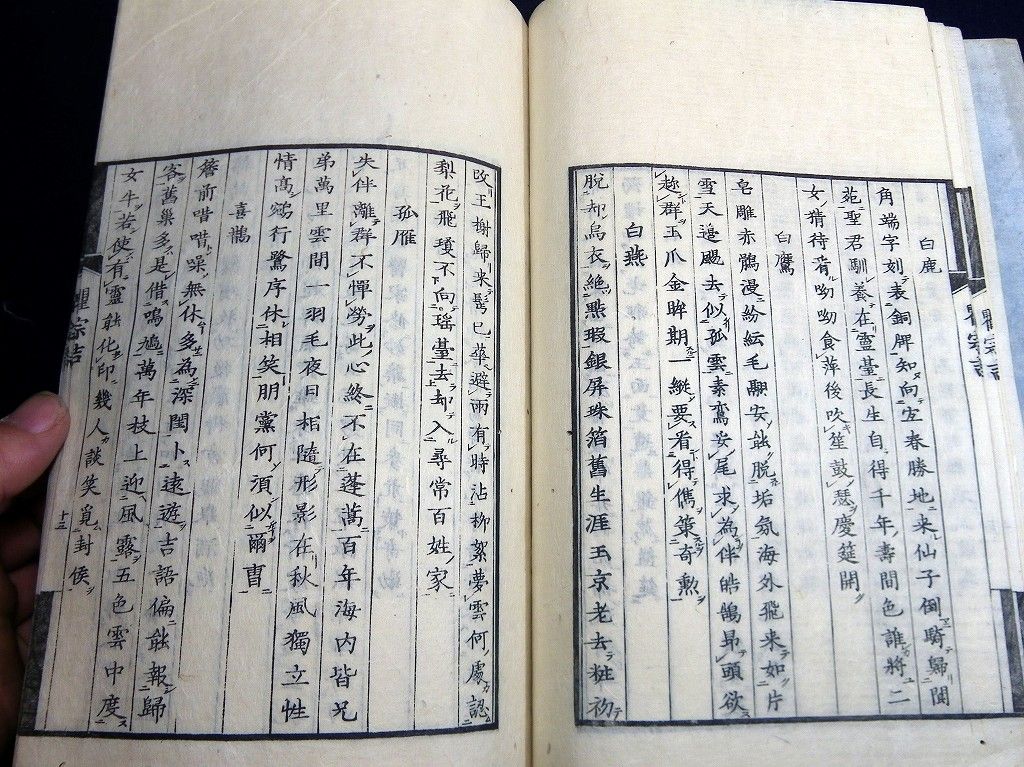 白鹿
角端字刻表銅牌知向宜春勝地来仙子倒騎歸閬
苑聖君馴養在靈臺長生自得千年壽間色誰將二
女猜待看呦呦食萍後吹笙鼓瑟慶筵開
白鷹
皂雕赤鶻漫紛紜毛翮安能脱垢氛海外飛来如片
雪天邊颺去似孤雲素鸞安尾求為伴皓鵠昂頭欲
趁群玉爪金眸期一縱要看得雋策奇勲
白燕
脱却烏衣絶點瑕銀屏珠箔舊生涯玉京老去粧初
改王謝歸来鬂已華避雨有時沾柳絮夢雲何處認
梨花飛瓊不向瑶臺去却入尋常百姓家
孤雁
失伴離群不憚勞此心終不在蓬蒿百年海内皆兄
弟萬里雲間一羽毛夜月相隨形影在秋風獨立性
情高鴛行鷺序休相笑朋黨何須似爾曹
喜鵲
簷前唶唶噪無休多為深閨卜遠遊吉語偏能報歸
客舊巣多是借鳴鳩萬年枝上迎風露五色雲中度
女牛若使有靈能化印幾人談笑覓封侯
十三